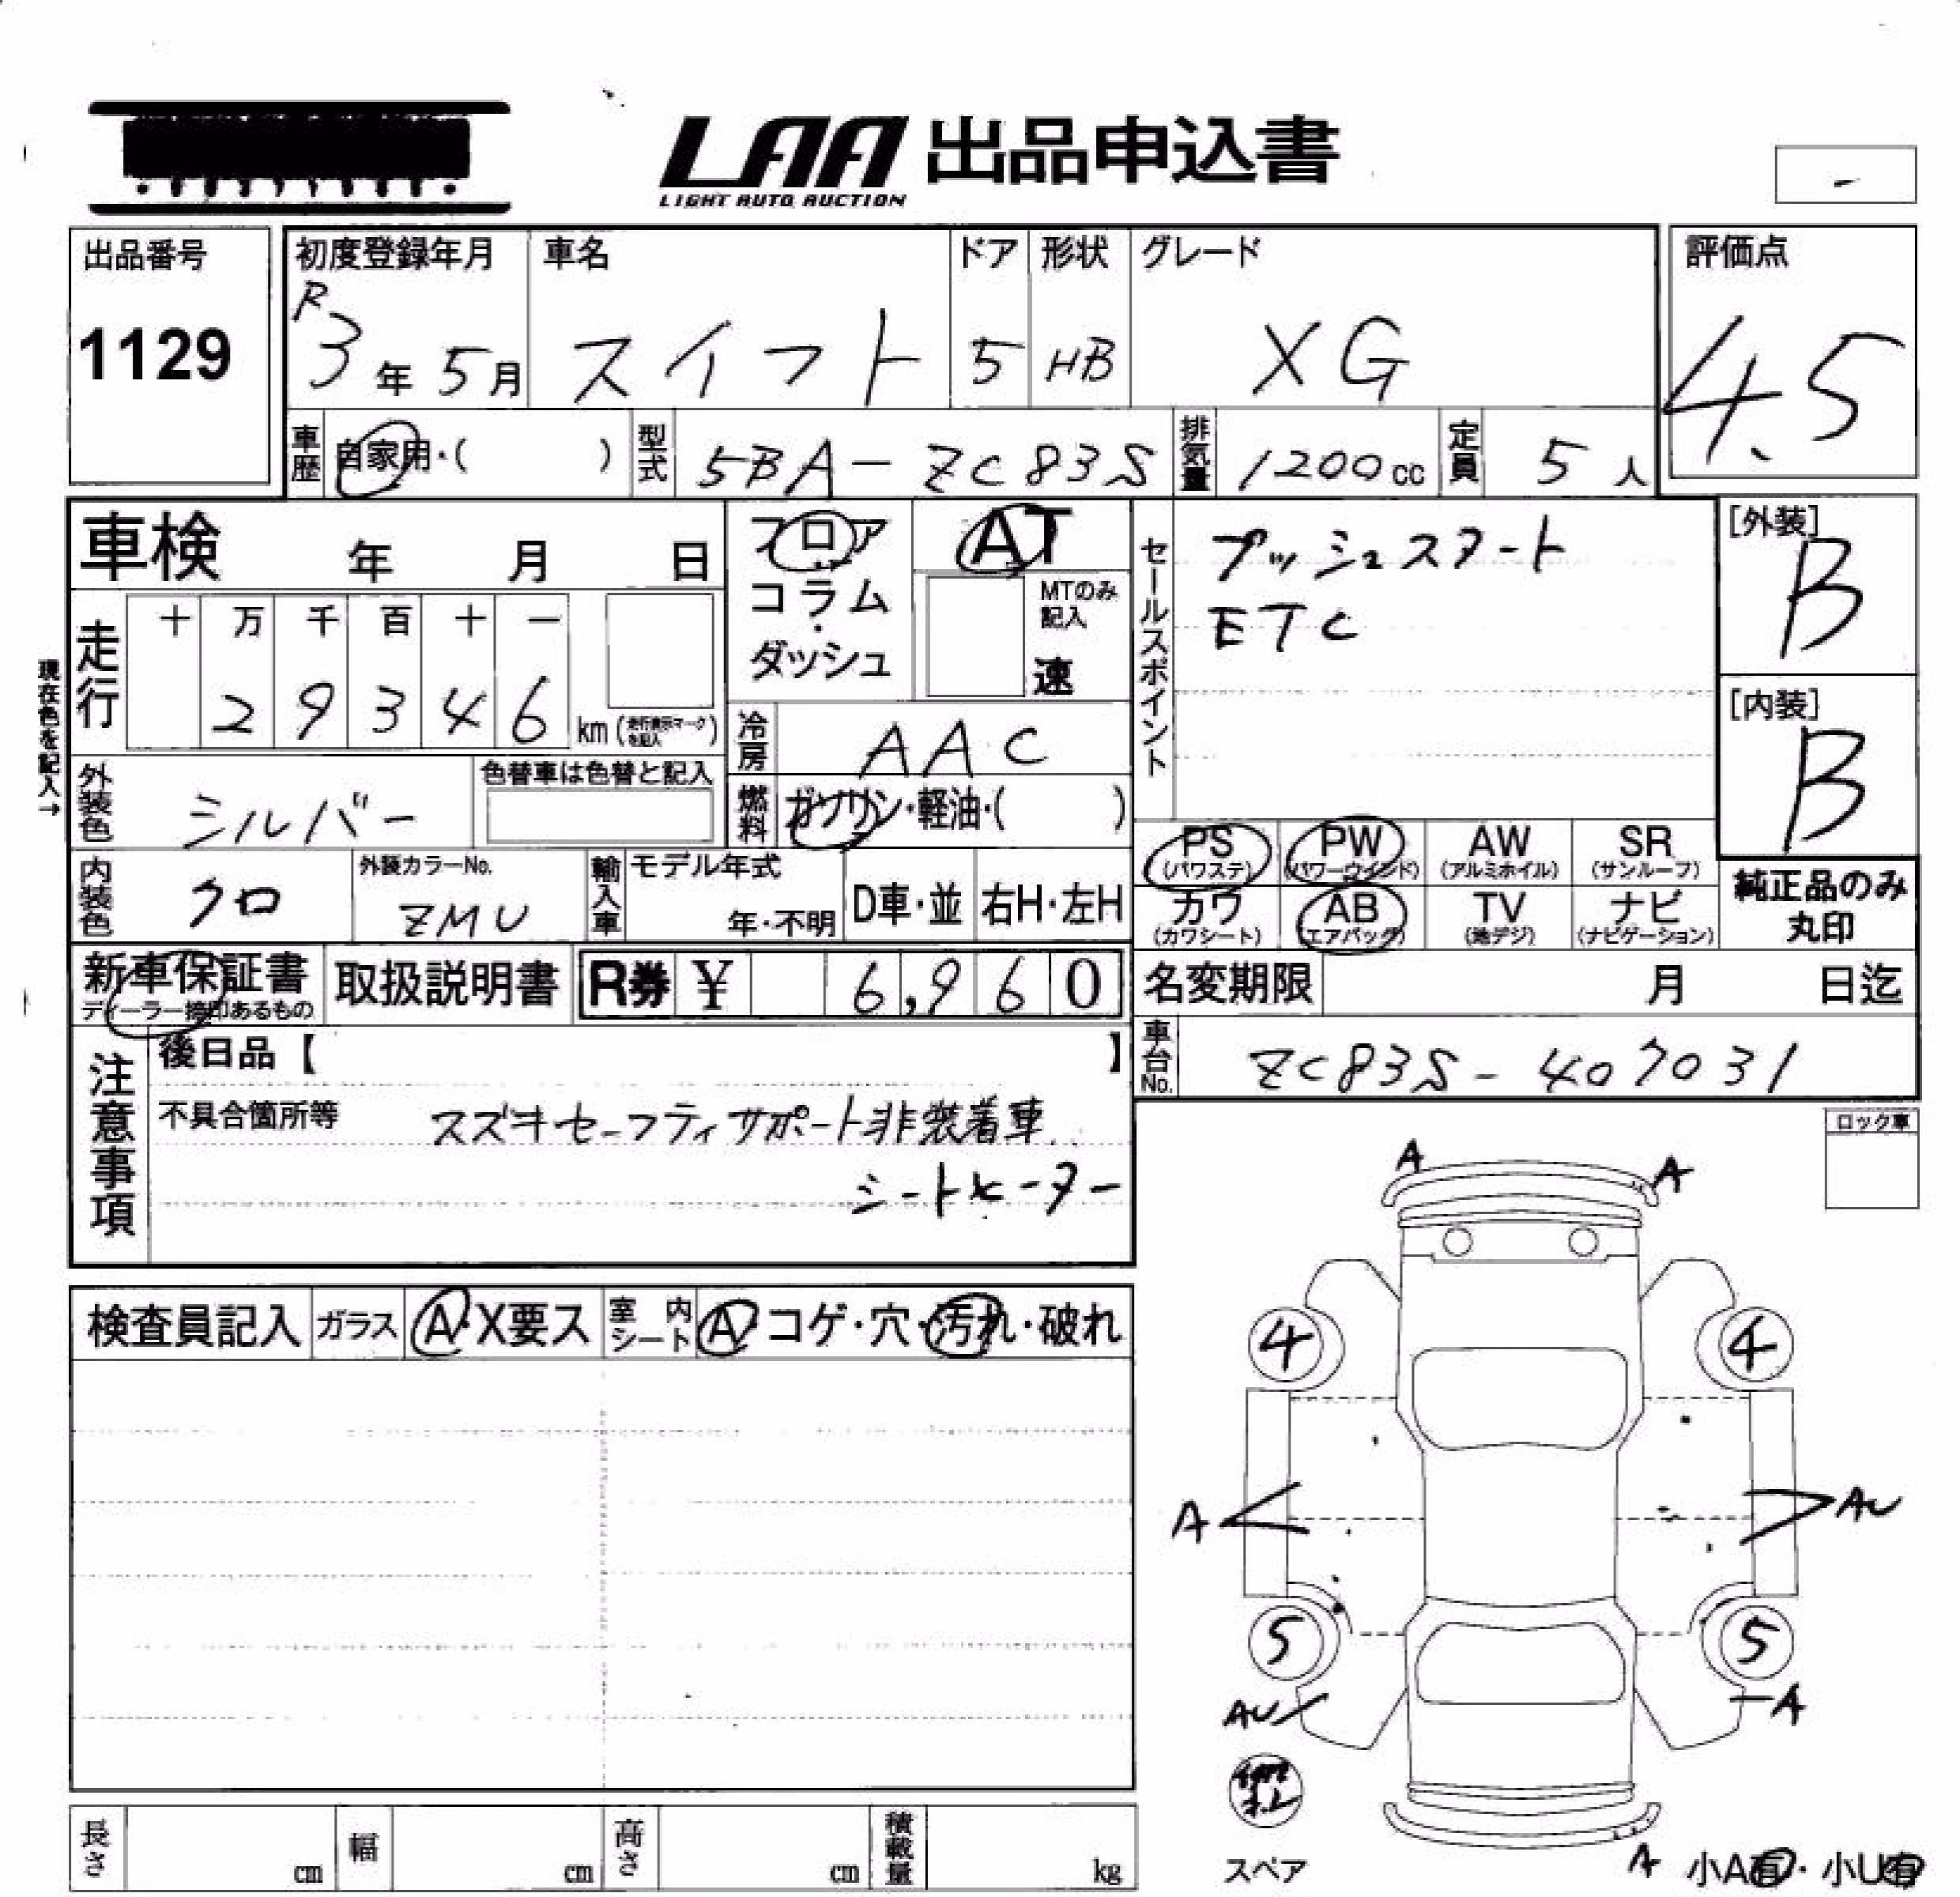 LAA 出品申込書
LIGHT AUTO AUCTION
-
出品番号
1129
初度登録年月
R3年5月
車名
スイフト
ドア
5
形状
HB
グレード
XG
評価点
4.5
車歴
自家用・( )
型式
5BA-ZC83S
排気量
1200cc
定員
5人
車検 年 月 日
フロア
コラム
・
ダッシュ
AT
MTのみ
記入
速
セールスポイント
プッシュスタート
ETC
[外装]
B
[内装]
B
現在色を記入→
走行
十 万 千 百 十 一
2 9 3 4 6 km(走行表示マークを記入)
冷房
AAC
外装色
シルバー
色替車は色替と記入
燃料
ガソリン・軽油・( )
内装色
クロ
外装カラーNo.
ZMU
輸入車
モデル年式
年・不明
D車・並
右H・左H
PS
(パワステ)
PW
(パワーウインド)
AW
(アルミホイル)
SR
(サンルーフ)
カワ
(カワシート)
AB
(エアバッグ)
TV
(地デジ)
ナビ
(ナビゲーション)
純正品のみ
丸印
新車保証書
ディーラー捺印あるもの
取扱説明書
R券 ¥ 6,960
名変期限 月 日迄
車台No.
ZC83S-407031
注意事項
後日品【 】
不具合箇所等
スズキセーフティサポート非装着車
シートヒーター
ロック車
A
A
検査員記入
ガラス
A・X要ス
室内シート
A・コゲ・穴・汚れ・破れ
4
4
A
AU
5
5
AU
A
スペア
長さ cm
幅 cm
高さ cm
積載量 kg
A
小A有・小U有